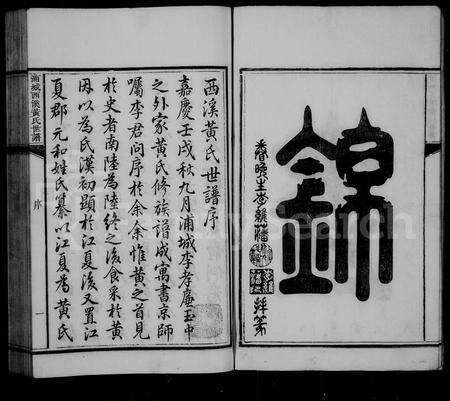 錦
眷晚生李賴藩
拜篆
西溪黃氏世譜序
嘉慶壬戌秋九月浦城李孝廉玉中
之外家黃氏修族譜成寓書京師
囑李君問序於余余惟黃之首見
於史者南陸為陸終之後食采於黃
因以為氏漢初顯於江夏後又置江
夏郡元和姓氏纂以江夏為黃氏
浦城西溪黃氏世譜
序
一